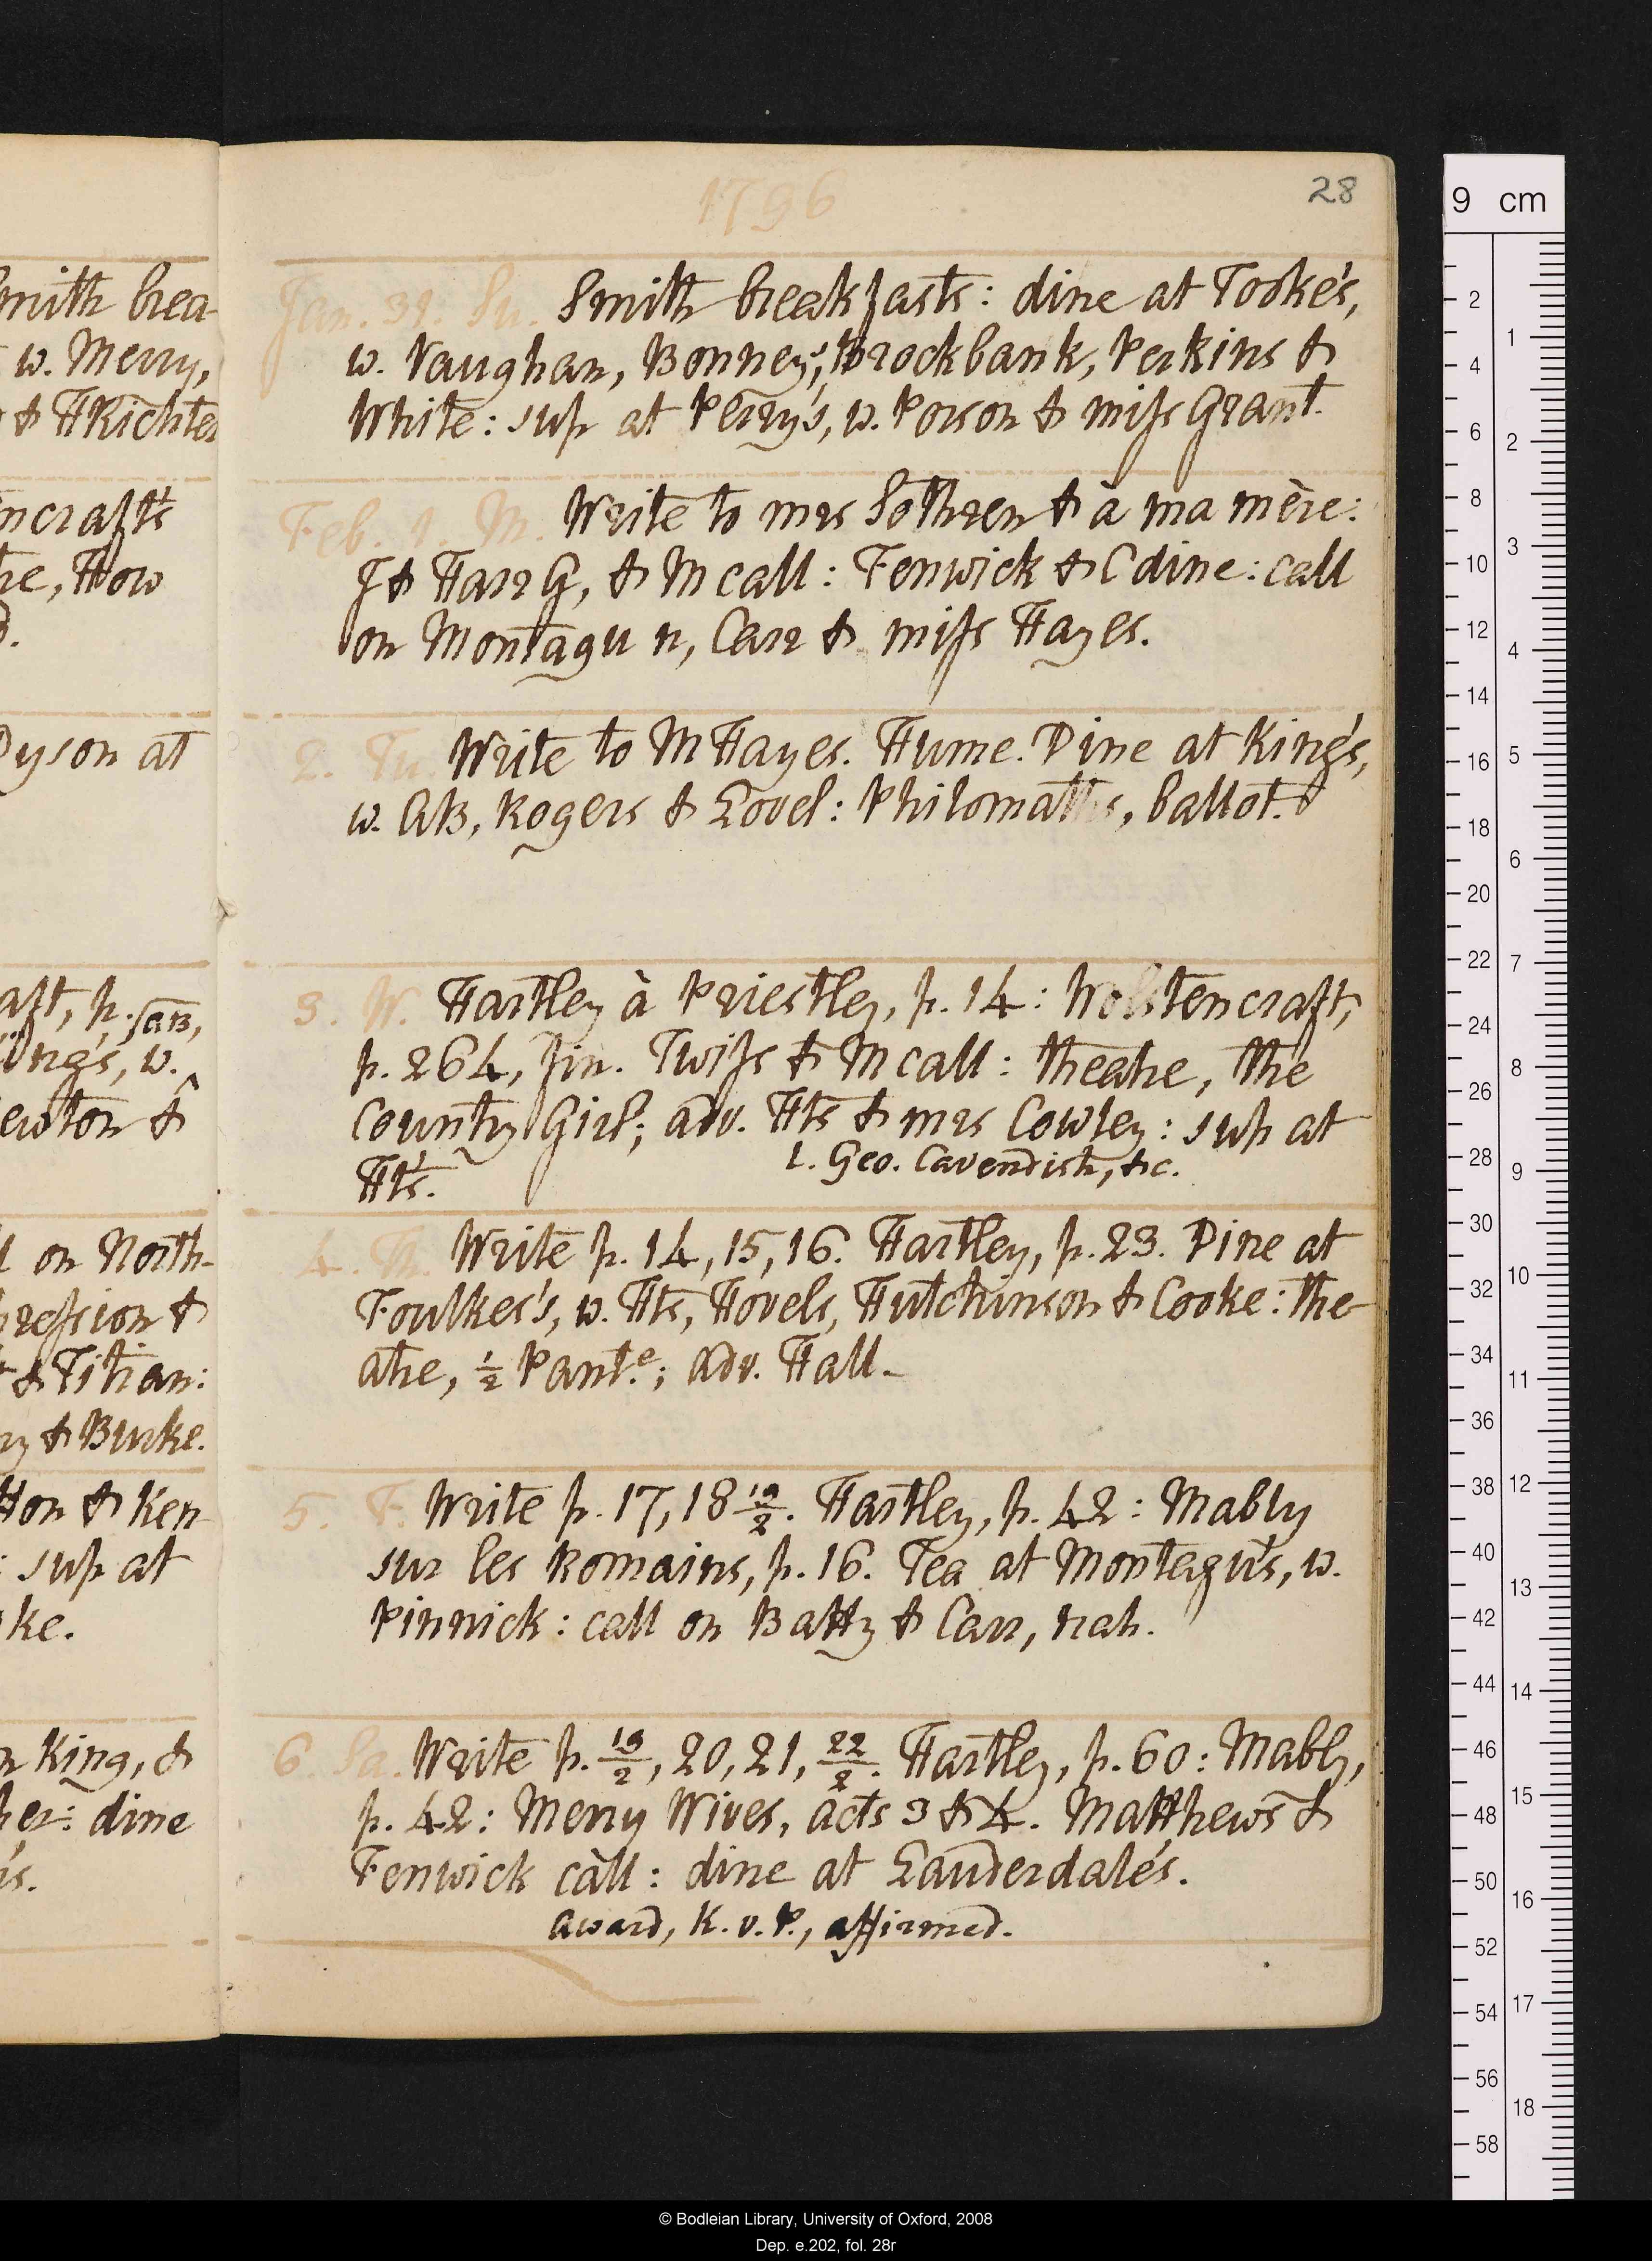 smith brea-
w. Merry,
& HRichter
ncraft's
re, How
Dyson at
aft, p.
AB,
ing's, w.
ewton &
on North-
pression &
& Titian:
ry & Burke.
Hon & Ken
: sup at
ke.
King, &
her: dine
's.
1796
28
Jan. 31. Su. Smith breakfasts: dine at Tooke's,
w. Vaughan, Bonney, Brockbank, Perkins &
White: sup at Perry's, w. Porson & miss Grant.
Feb. 1. M. Write to mrs Sothren & à ma mère:
J & Harr G, & M call: Fenwick & C dine: call
on Montagu n, Carr & miss Hayes.
2. Tu. Write to M Hayes. Hume. Dine at King's,
w. AB, Rogers & Lovel: Philomaths, ballot.
3. W. Hartley à Priestley, p. 14: Wolstencraft,
p. 264, fin. Twiss & M call: theatre, the
Country Girl; adv. Hts & mrs Cowley: sup at
Hts'.
L. Geo. Cavendish, &c.
4. Th. Write p. 14, 15, 16. Hartley, p. 23. Dine at
Foulkes's, w. Hts, Hovels, Hutchinson & Cooke: the-
atre, ½ Pant.e; adv. Hall.
5. F. Write p. 17, 18 19/2. Hartley, p. 42: Mably
sur les Romains, p. 16. Tea at Montagu's, w.
Pinnick: call on Batty & Carr, nah.
6. Sa. Write p. 19/2, 20, 21, 22/2. Hartley, p. 60: Mably,
p. 42: Merry Wives, acts 3 & 4. Matthews &
Fenwick call: dine at Lauderdale's.
Award, K. v. P., affirmed.
9 cm
2
4
6
8
10
12
14
16
18
20
22
24
26
28
30
32
34
36
38
40
42
44
46
48
50
52
54
56
58
1
2
3
4
5
6
7
8
9
10
11
12
13
14
15
16
17
18
© Bodleian Library, University of Oxford, 2008
Dep. e.202, fol. 28r